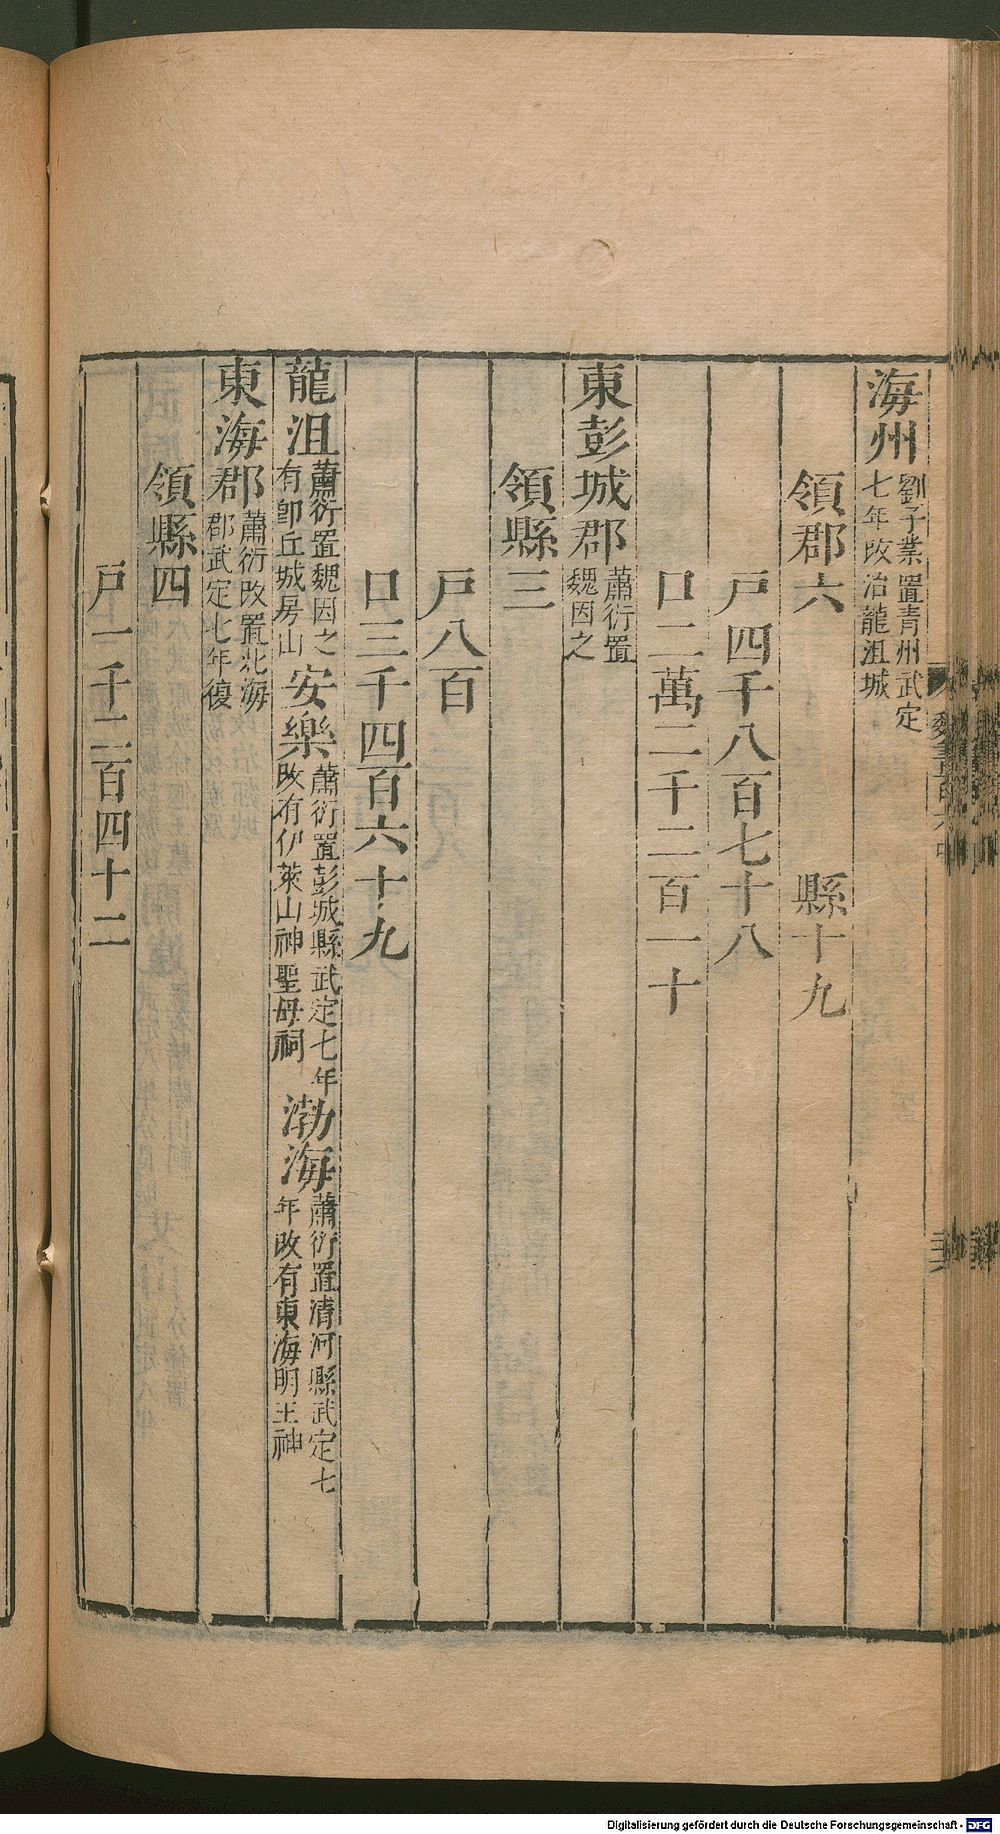 海州劉子業置青州武定七年改治龍沮城
領郡六　縣十九
戸四千八百七十八
口二萬二千二百一十
東彭城郡蕭衍置魏因之
領縣三
戸八百
口三千四百六十九
龍沮蕭衍置魏因之有卽丘城房山　安樂蕭衍置彭城縣武定七年改有伊萊山神聖母祠　渤海蕭衍置清河縣武定七年改有東海明王神
東海郡蕭衍改置北海郡武定七年復
領縣四
戸一千二百四十二
魏書
Digitalisierung gefördert durch die Deutsche Forschungsgemeinschaft - DFG